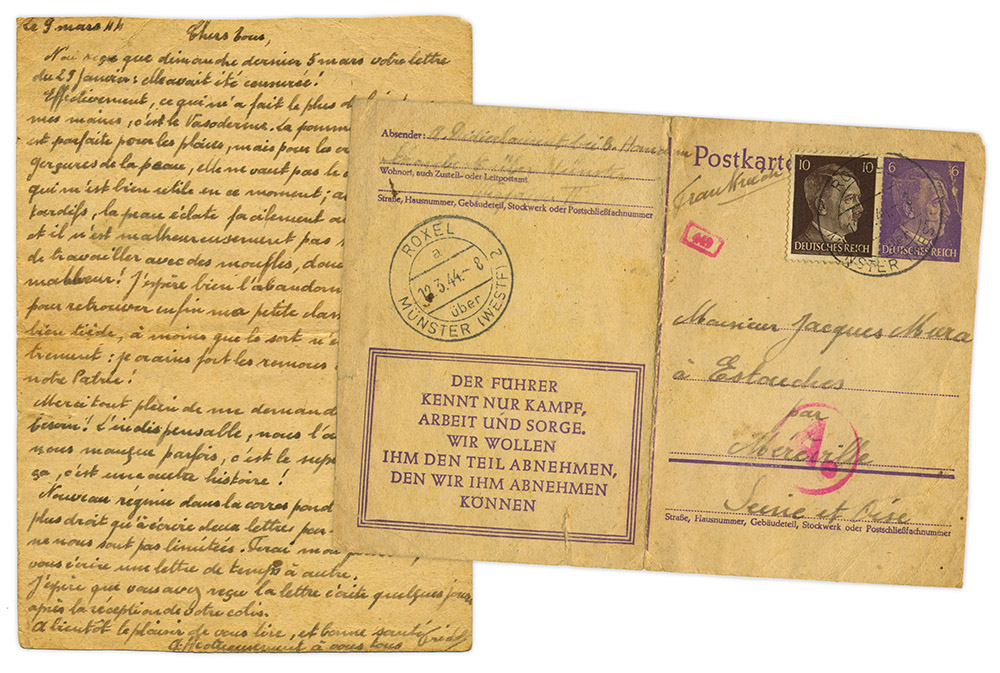 Le 9 mars 44
Chers tous,
que dimanche dernier 5 mars votre lettre
du 29 janvier: elle avait été censurée!
Effectivement, ce qui m'a fait le plus de
mes mains, c'est le Vasoderme. La pomm
est parfaite pour les plaies, mais pour les
gerçures de la peau, elle ne vaut pas le
qui m'est bien utile en ce moment; a
tardifs, la peau éclate facilement
et il n'est malheureusement pas
de travailler avec des moufles, donc
malheur! J'espère bien l'abandonn
pour retrouver enfin ma petite
bien tiède, à moins que le sort n'e
trement: je crains fort les remous
notre Patrie!
Merci tout plein de me demand
besoin! L'indispensable, nous l'a
nous manque parfois, c'est le supe
ça, c'est une autre histoire!
Nouveau régime dans la correspond
plus droit qu'à écrire deux lettres par
ne nous sont pas limitées. Ferai mon
vous écrire une lettre de temps à autre.
J'espère que vous avez reçu la lettre écrite quelques jours
après la réception de votre colis.
A bientôt le plaisir de vous lire, et bonne santé
Affectueusement à vous tous
Absender:
Wohnort, auch Zustell- oder Leitpostamt
Straße, Hausnummer, Gebäudeteil, Stockwerk oder Postschließfachnummer
ROXEL
a
12.3.44.-8
über
MÜNSTER (WESTF) 2
DER FÜHRER
KENNT NUR KAMPF,
ARBEIT UND SORGE.
WIR WOLLEN
IHM DEN TEIL ABNEHMEN,
DEN WIR IHM ABNEHMEN
KÖNNEN
Postkarte
Frankreich
449
10 10
DEUTSCHES REICH
6 6
DEUTSCHES REICH
Monsieur Jacques Mura
à Estouches
par
Méréville
Seine et Oise
A.
Straße, Hausnummer, Gebäudeteil, Stockwerk oder Postschließfachnummer